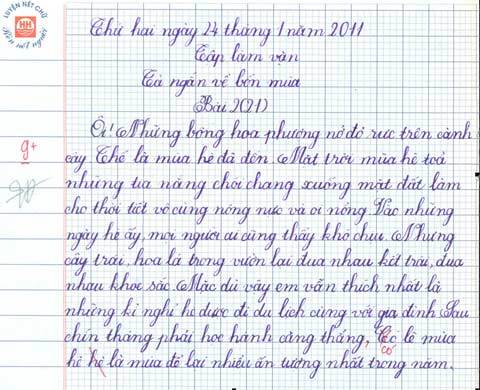 LUYỆN NÉT CHỮ
HH
Rèn nết người
Thứ hai ngày 24 tháng 1 năm 2011
Tập làm văn
Tả ngắn về bốn mùa
Bài 2(21)
Ôi! Những bông hoa phượng nở đỏ rực trên cành
9+
cây. Thế là mùa hè đã đến. Mặt trời mùa hè toả
những tia nắng chói chang xuống mặt đất làm
cho thời tiết vô cùng nóng nực và oi nồng. Vào những
ngày hè ấy, mọi người ai cũng thấy khó chịu. Nhưng
cây trái, hoa lá trong vườn lại đua nhau kết trái, đua
nhau khoe sắc. Mặc dù vậy em vẫn thích nhất là
những kì nghỉ hè được đi du lịch cùng với gia đình. Sau
chín tháng phải học hành căng thẳng, Có lẽ mùa
có
hè hè là mùa để lại nhiều ấn tượng nhất trong năm.